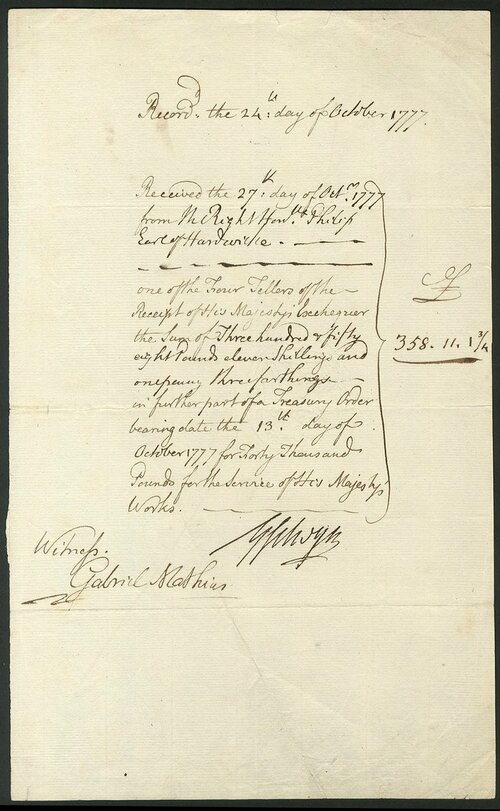 Record.d the 24.th day of October 1777.
Received the 27.th day of Oct.r 1777
from the Right Hon.ble Philip
Earl of Hardwicke.
one of the Four Tellers of the
Receipt of His Majesty's Exchequer
the Sum of Three hundred & fifty
eight Pounds eleven Shillings and
one penny three farthings
in further part of a Treasury Order
bearing date the 13.th day of
October 1777 for Forty Thousand
Pounds for the Service of His Majesty's
Works.
£
358. 11. 1 3/4
GSelwyn
Witness.
Gabriel Mathias